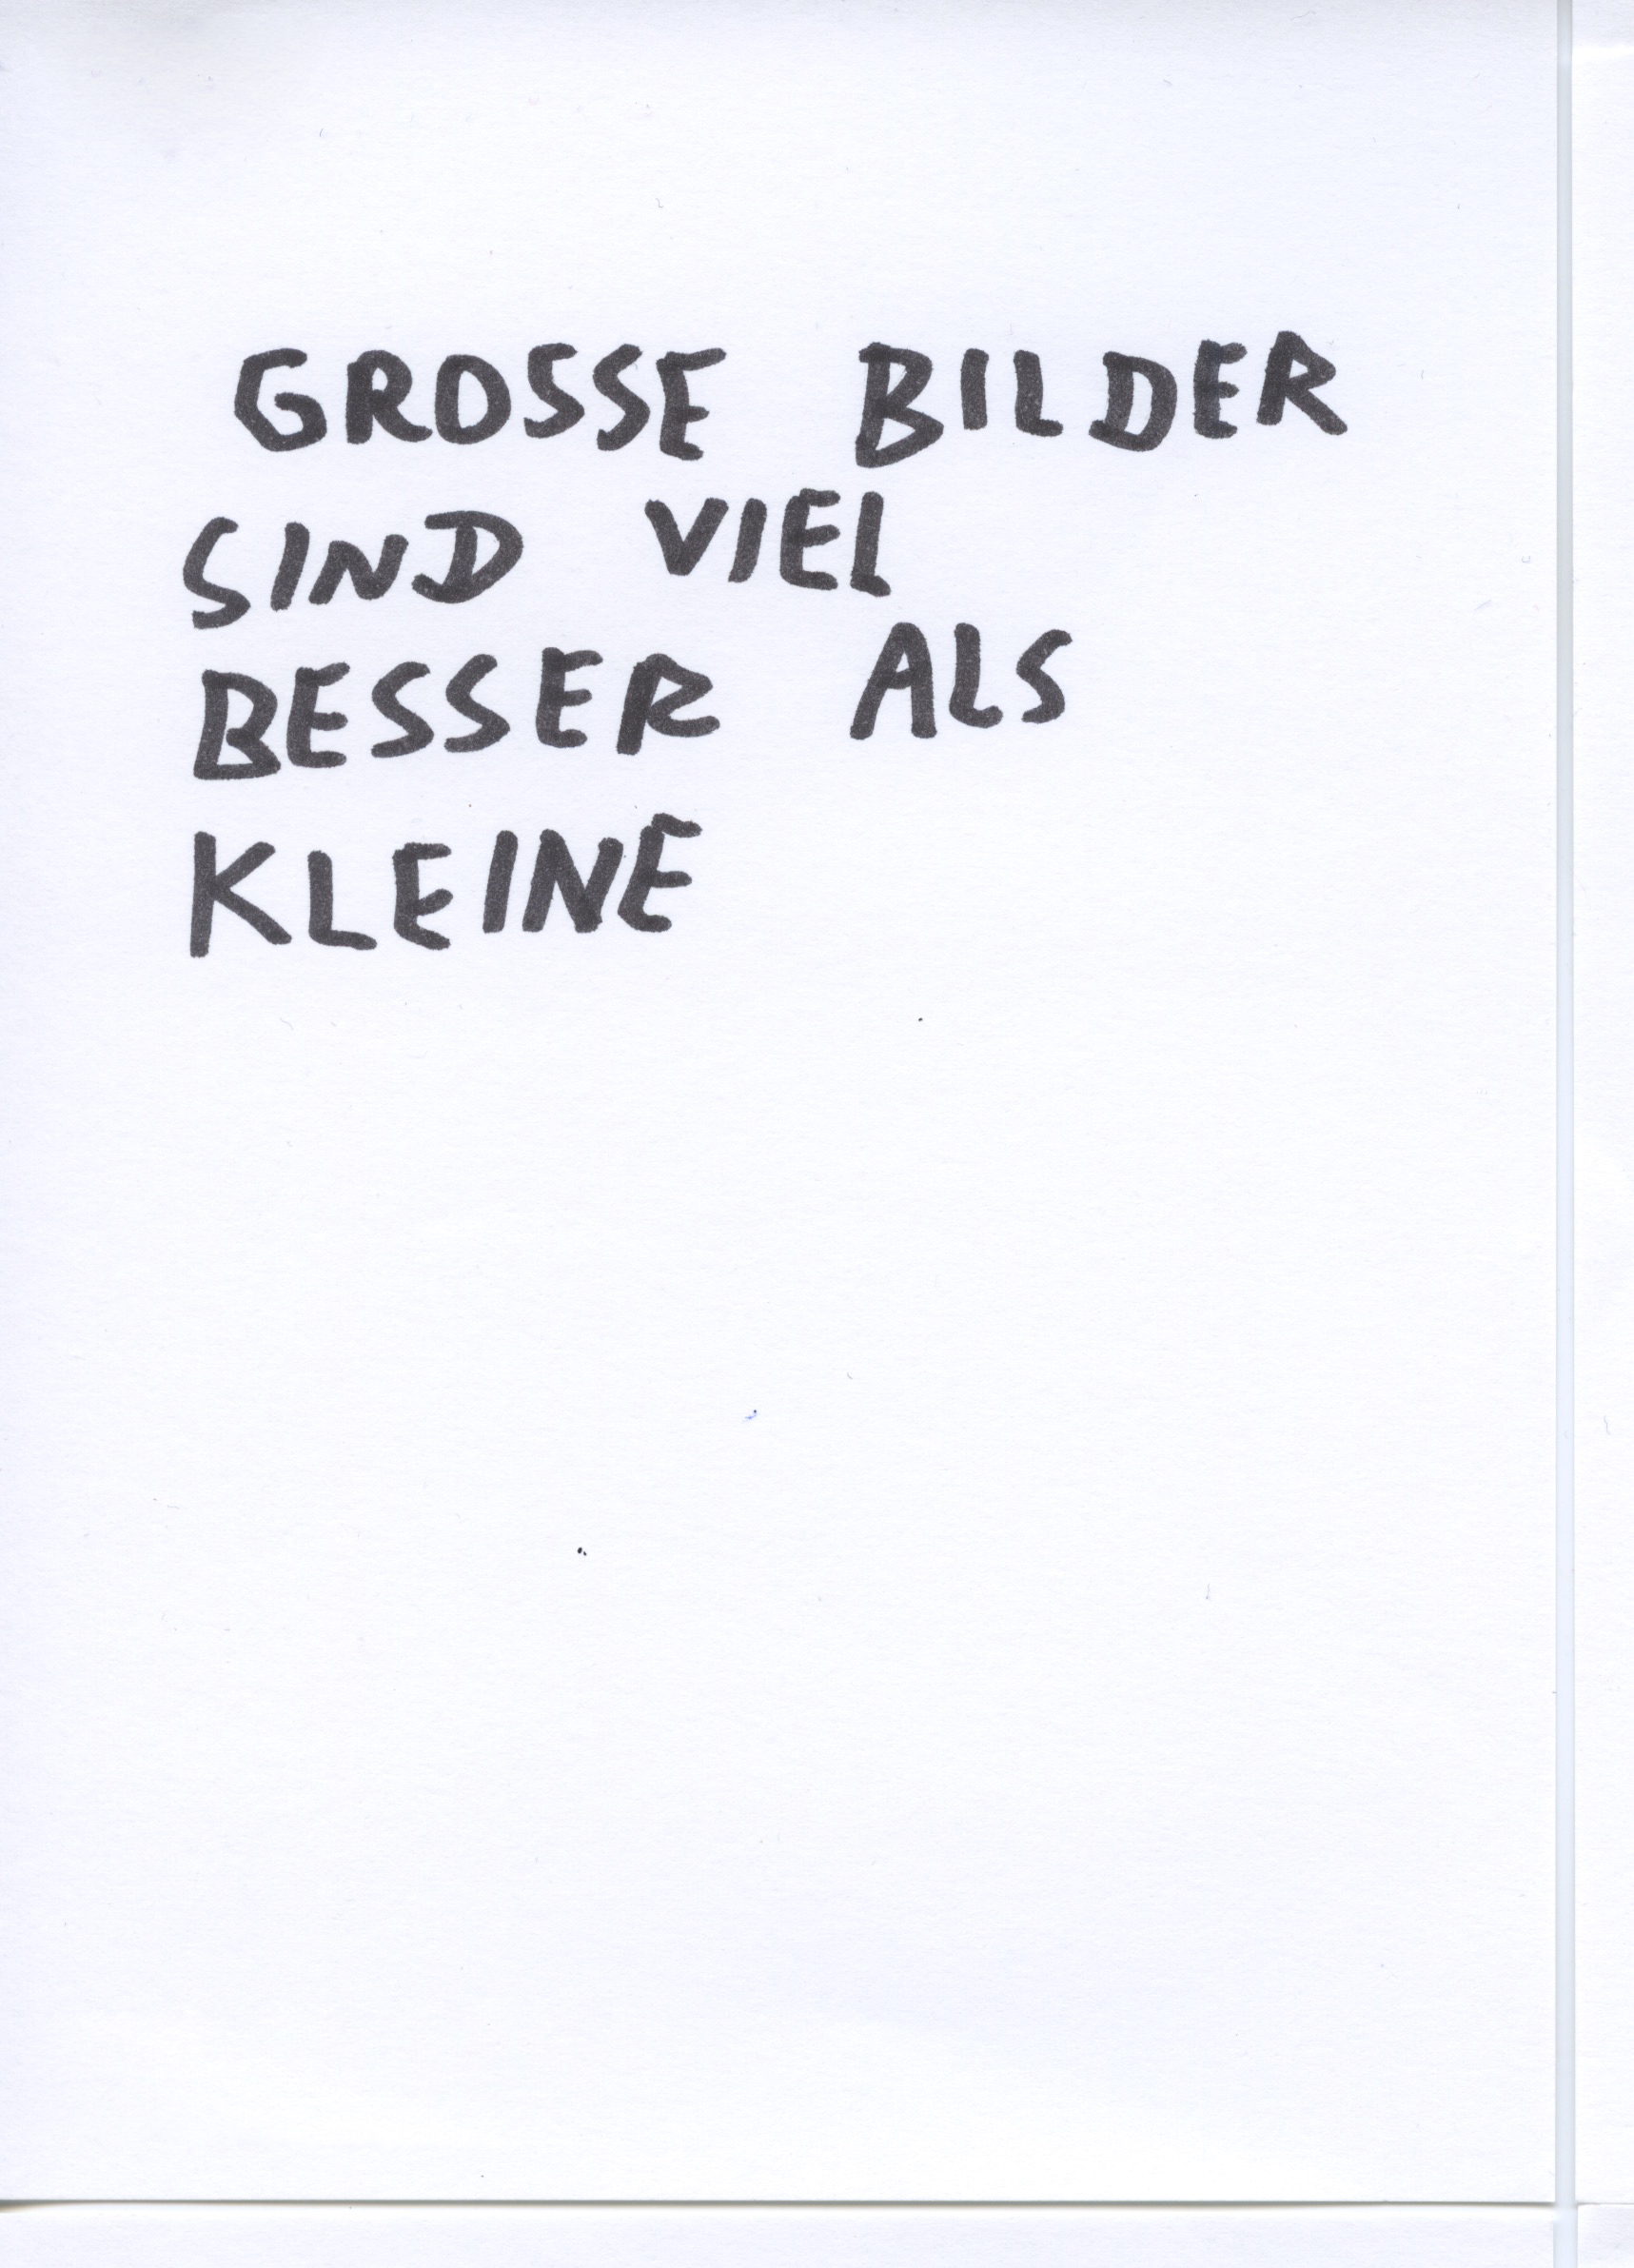 GROSSE BILDER
SIND VIEL
BESSER ALS
KLEINE